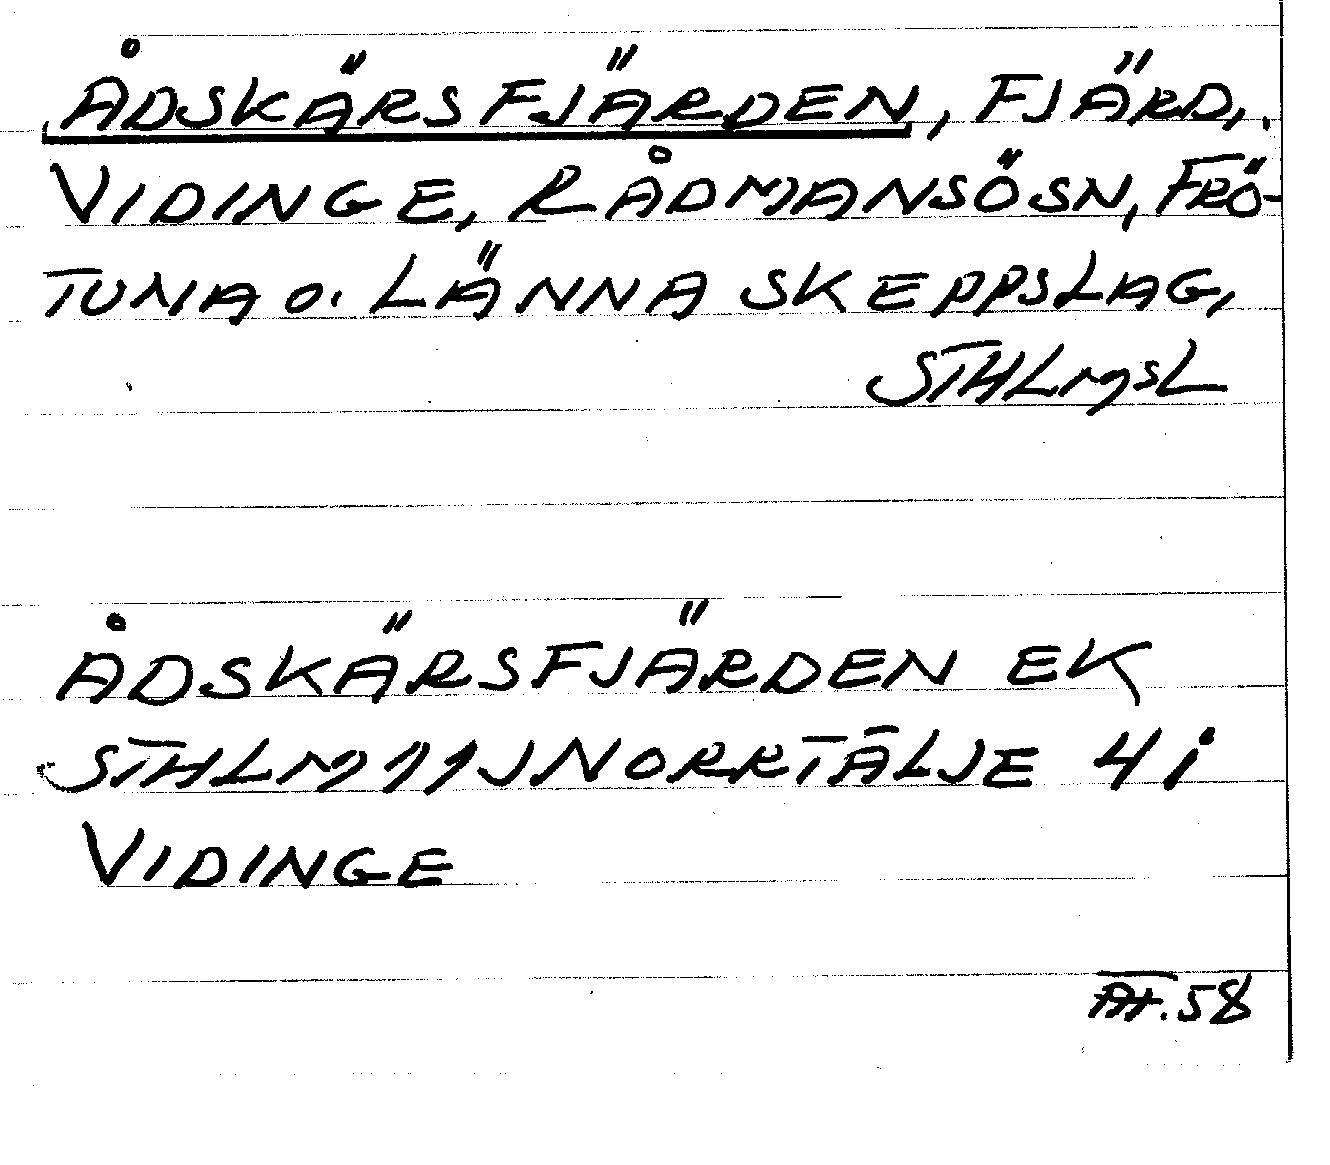 ÅDSKÄRSFJÄRDEN, FJÄRD,.
VIDINGE, RÅDMANSÖSN, FRÖ-
TUNA o. LÄNNA SKEPPSLAG,
STHLmSL
ÅDSKÄRSFJÄRDEN EK
STHLM 11J NORRTÄLJE 4i
VIDINGE
58